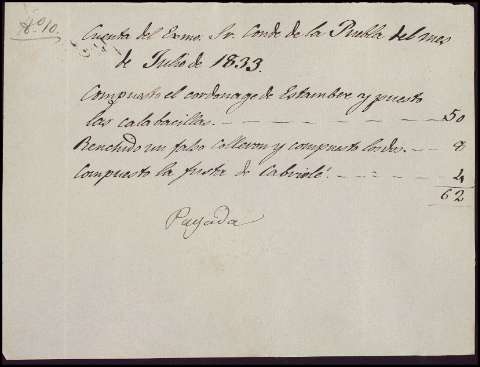 Nº 10.
Cuenta del Exmo. Sr. Conde de la Puebla del mes
de Julio de 1833.
Compuesto el cordonage de Estambre y puesto
las calabacillas. 50
Renchido un falso calleron y compuesto 8
Compuesto la fusta de Cabriolé. 4
62
Pagada